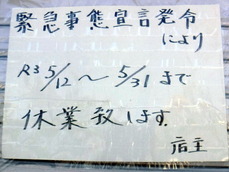 緊急事態宣言発令
により
R3 5/12〜5/31まで
休業致します.
店主